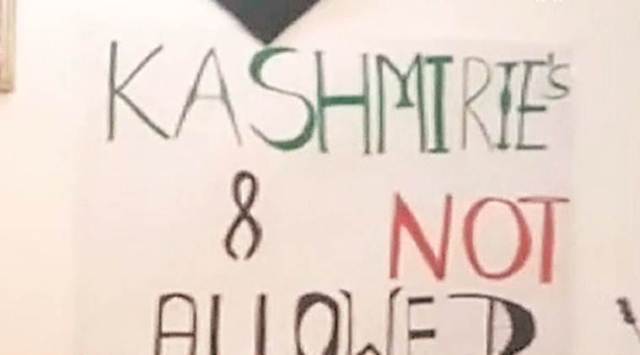 KASHMIRIE's
& NOT
ALLOWED